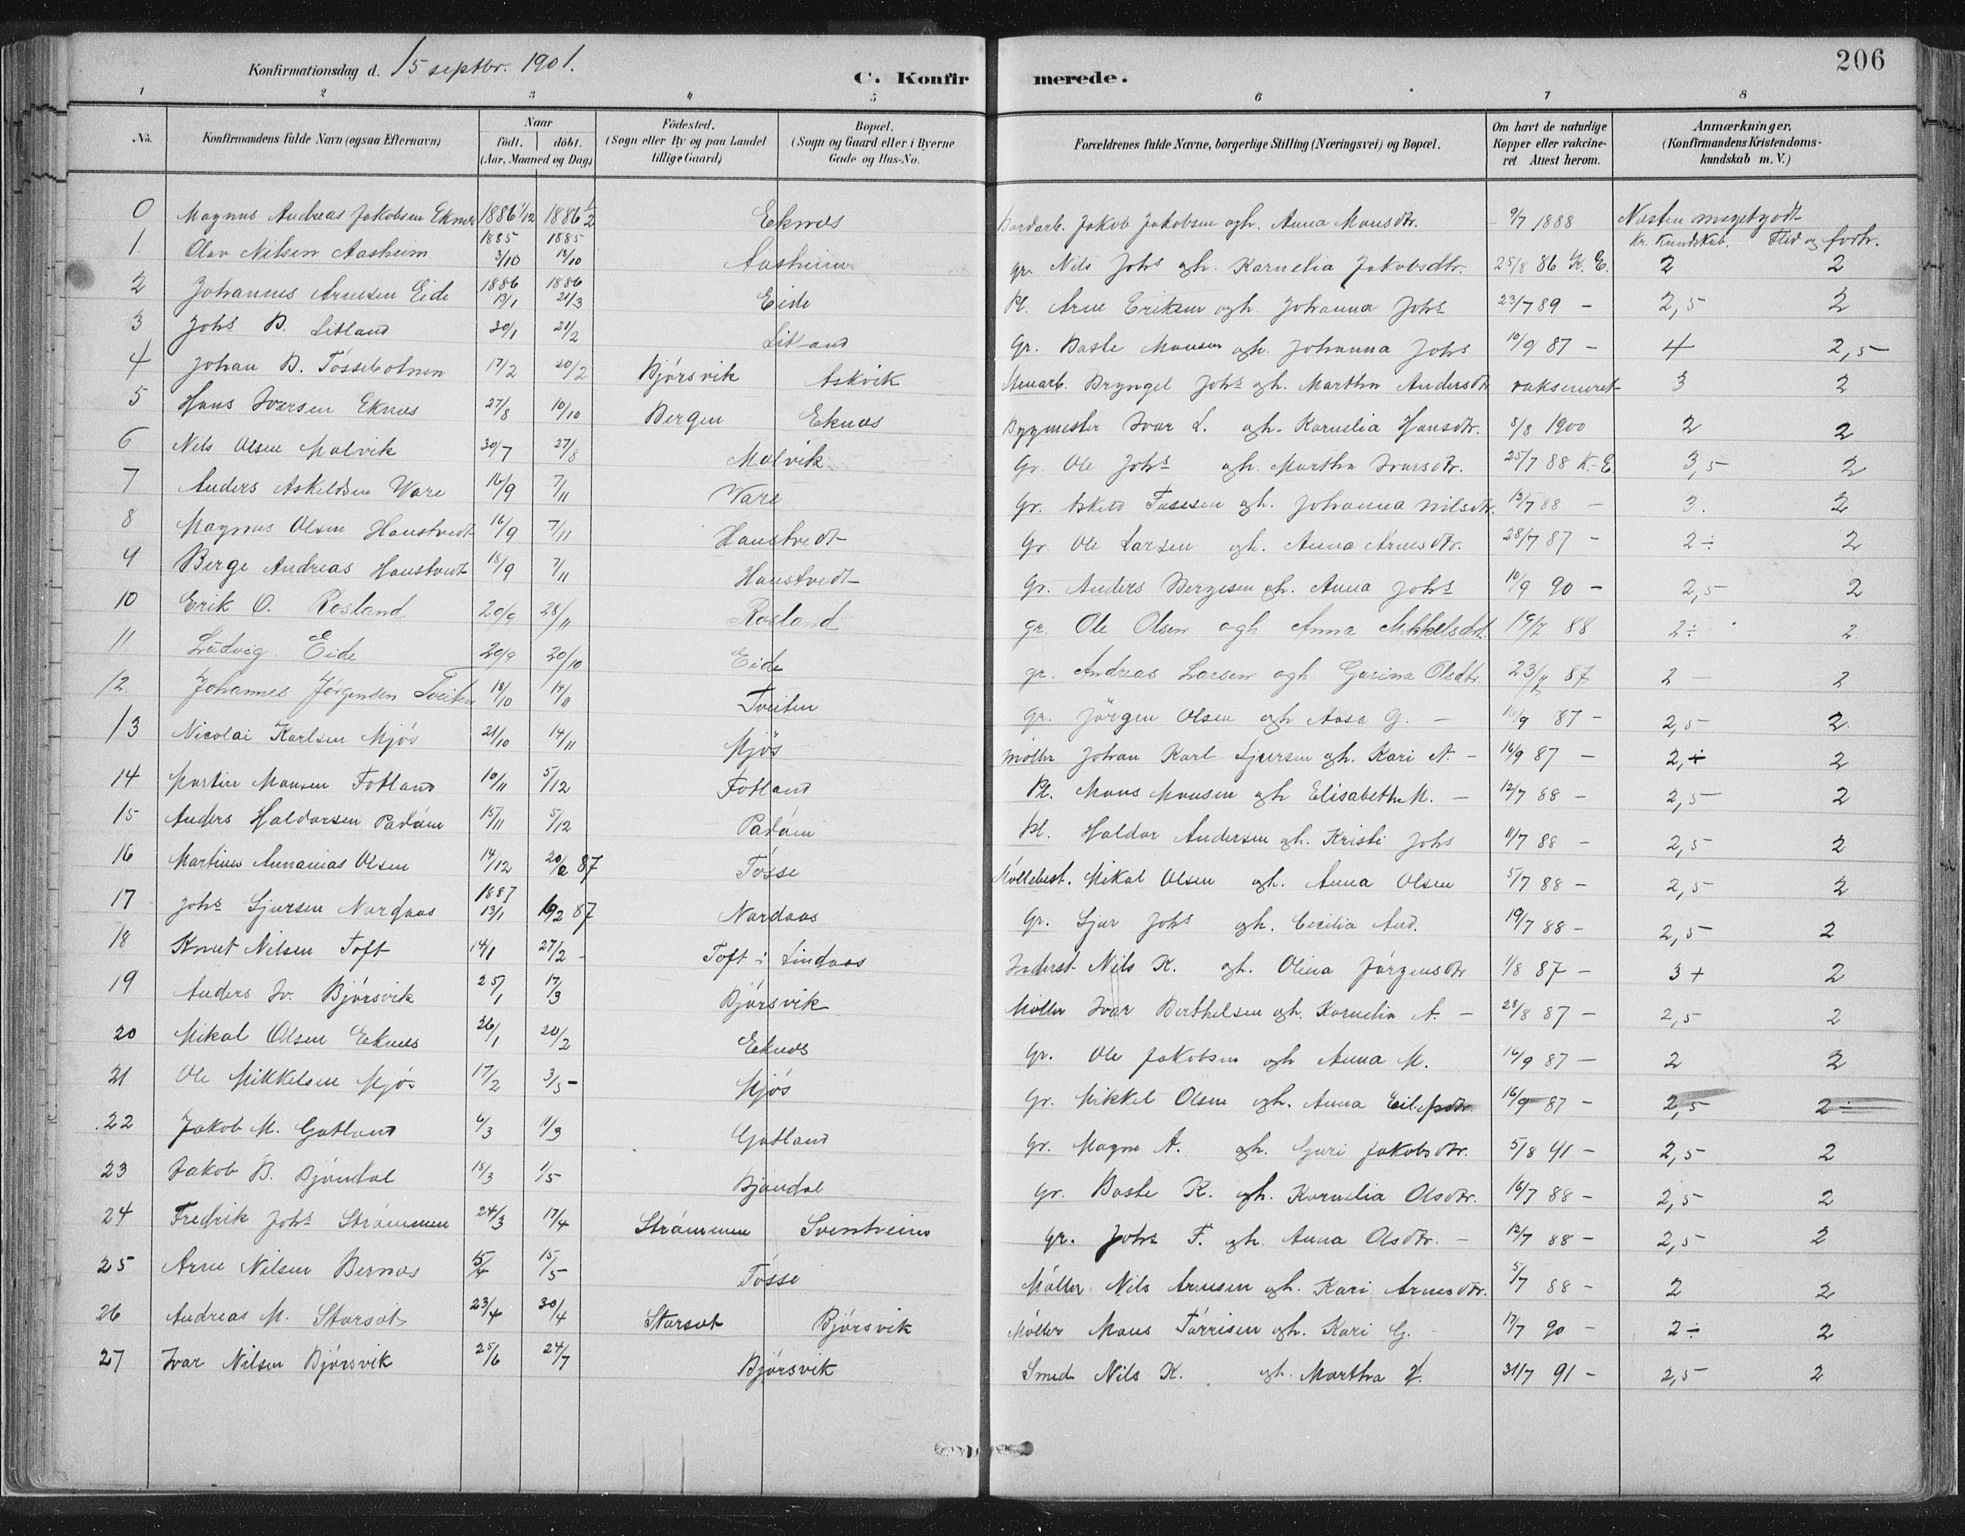 206
Konfirmationsdag d. 15 septbr. 1901.
C. Konfirmerede.
1 2 3 4 5 6 7 8
No. Konfirmandens fulde Navn (ogsaa Efternavn) Naar födt. döbt. (Aar, Maaned og Dag) Födested. (Sogn eller By og paa Landet tillige Gaard) Bopæl. (Sogn og Gaard eller i Byerne Gade og Hus-No. Forældrenes fulde Navne, borgerlige Stilling (Næringsvei) og Bopæl. Om havt de naturlige Kopper eller vakcineret Attest herom. Anmærkninger. (Konfirmandens Kristendomskundskab m. V.)
0 Magnus Andreas Jakobsen Eknes 1886 1/12 1886 Eknæs Jakob Jakobsen ogh. Anna Monsdtr. 9/7 1888 Næsten megetgodt
Kr. Kundskab. Flid og forh.
1. Olav Nilsen Aasheim 1885 3/10 1885 Aasheim gr. Nils Johs ogh. Karnelia Jakobsdtr. 25/8 86 K. E. 2 2
2 Johannes Arnesen Eide 1886 13/1 1886 21/3 Eide Pl. Arne Eriksen ogh. Johanna Johs 23/7 89 - 2,5 2
3 Johs B. Litland 30/1 21/2 Litland Gr. Baste Monsen ogh. Johanna Johs 10/9 87 - 4 2,5 -
4 Johan B. Tössebotnen 17/2 20/2 Björsvik Askvik Bryngel Johs ogh. Martha Andersdtr vakseneret 3 2
5 Hans Iversen Eknæs 27/8 10/10 Bergen Eknæs Bygmester Ivar L. ogh. Kornelia Hansdtr. 8/8 1900 2 2
6 Nils Olsen Molvik 30/7 27/8 Molvik Gr. Ole Johs ogh. Martha Ivarsdtr. 25/7 88 K-E. 3,5 2
7 Anders Askeldsen Vare 16/9 7/11 Vare Gr. Askeld ogh. Johanna Nilsdtr. 13/7 88 - 3. 2
8 Magnus Olsen Haustvedt 16/9 7/11 Haustvedt Gr. Ole Larsen ogh. Anna Arnesdtr. 28/7 87 - 2÷ 2
9 Berge Andreas Haustvedt 18/9 7/11 Haustvedt Gr. Anders Bergesen gh. Anna Johs 10/9 90 - 2,5 2
10 Erik O. Rosland 20/9 28/11 Rosland gr. Ole Olsen ogh Anna Mikkelsdtr. 19/7 88 2÷ 2
11 Ludvig Eide 20/9 20/10 Eide gr. Andreas Larsen ogh. Gurina Olsdtr. 23/7 87 2 2
12. Johannes Jørgensen Tveiten 18/10 14/11 Tveiten Gr. Jörgen Olsen ogh Aasa G. - 87 - 2,5 2
13 Nicolai Karlsen Mjös 21/10 14/11 Mjös Johan Karl Sjursen ogh. Kari A. - 16/9 87 - 2,÷ 2
14 Martin Monsen Fotland 10/11 5/12 Fotland Pl. Mons Monsen ogh Elisabeth M. - 12/7 88 - 2,5 2
15 Anders Haldorsen Padöin 15/11 5/12 Padöin Pl. Haldor Andersen ogh. Kristi Johs 11/7 88 - 2,5 2
16 Martinus Annanias Olsen 14/12 87 Tösse Möllebest. Mikal Olsen ogh. Anna Olsen 5/7 88 - 2,5 2
17 Johs Sjursen Nordaas 1887 13/1 87 Nordaas Gr. Sjur Johs ogh. Cecilia And. 19/7 88 - 2,5 2
18 Knut Nilsen Toft 14/1 27/2 - Toft i Lindaas Inderst Nils K. ogh. Olina Jörgensdtr 1/8 87 - 3 + 2
19 Anders Iv. Björsvik 25/1 17/3 Björsvik Möller Ivar Berthelsen ogh. Kornelia A. - 28/8 87 - 2,5 2
20 Mikal Olsen Eknæs 26/1 20/2 Eknæs Gr. Ole Jakobsen ogh Anna M. 16/9 87 - 2 2
21 Ole Mikkelsen Mjös 17/2 3/5 - Mjös Gr. Mikkel Olsen ogh. Anna 16/9 87 - 2,5 2÷
22 Jakob M. Gotland 6/3 11/3 Gotland Gr. Magne A. ogh. Guri Jakobsdtr. 5/8 91 - 2,5 2
23 Jakob B. Björndal 18/3 1/5 Bjöndal Gr. Baste K. ogh. Kornelia Olsdtr. 16/7 88 - 2,5 2
24 Fredrik Johs Strömmen 24/3 17/4 Strömmen Gr. Johs F. ogh. Anna Olsdtr. - 12/7 88 - 2,5 2
25 Arne Nilsen Bernæs 5/4 15/5 Tösse Möller Nils Arnesen ogh. Kari Arnesdtr. 5/7 88 - 2 2
26 Andreas M. Storsæt 23/4 30/4 Storsæt Björsvik Möller Mons Törrisen ogh. Kari G. 17/7 90 - 2÷ 2
27 Ivar Nilsen Björsvik 25/6 24/7 Björsvik Smed Nils K. ogh. Martha 31/7 91 - 2,5 2